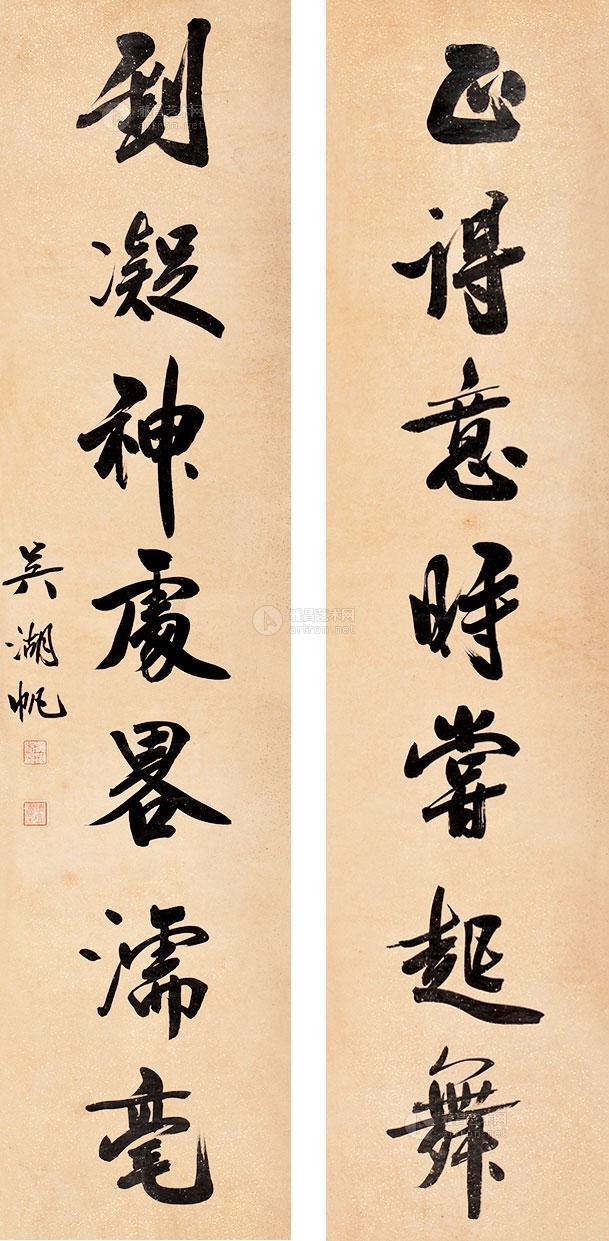 正得意時嘗起舞
到凝神處畧濡毫
吳湖帆
雅昌艺术网
artron.net